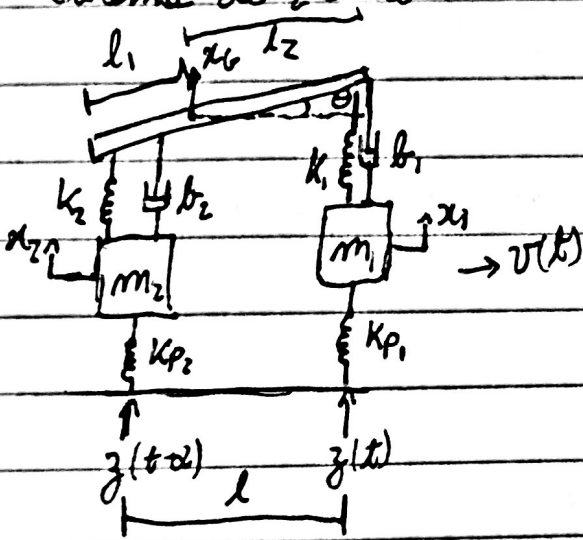 l₁ x_G l₂
θ
k₂ b₂ k₁ b₁
x₂ m₂ m₁ x₁ v(t)
kp₂ kp₁
z(t-α) z(t)
l